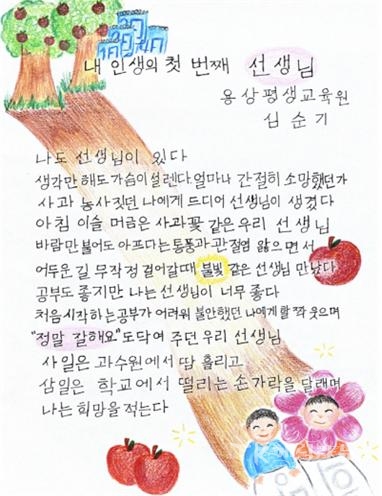 내 인생의 첫 번째 선생님
용상평생교육원
심순기
나도 선생님이 있다
생각만 해도 가슴이 설렌다. 얼마나 간절히 소망했던가
사과 농사짓던 나에게 드디어 선생님이 생겼다
아침 이슬 머금은 사과꽃 같은 우리 선생님
바람만 불어도 아프다는 통풍과 관절염 앓으면서
어두운 길 무작정 걸어갈때 불빛 같은 선생님 만났다
공부도 좋지만 나는 선생님이 너무 좋다
처음 시작하는 공부가 어려워 불안했던 나에게 활짝 웃으며
"정말 잘해요" 도닥여 주던 우리 선생님
사일은 과수원에서 땀 흘리고
삼일은 학교에서 떨리는 손가락을 달래며
나는 희망을 적는다